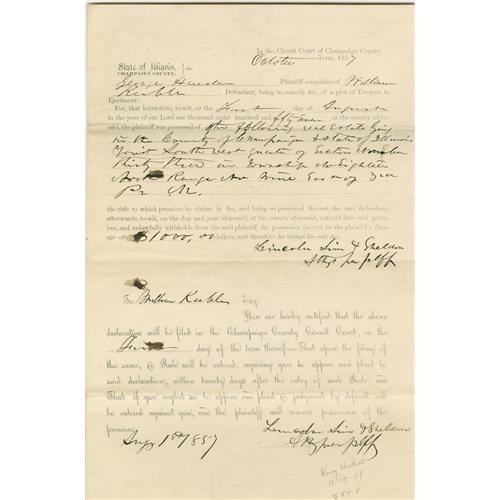 In the Circuit Court of Champaign County,
October Term, 1857
State of Illinois, } ss.
CHAMPAIGN COUNTY,
George Plaintiff complains of William
Keeble Defendant, being in custody &c., of a plea of Trespass in
Ejectment:
For, that heretofore, to-wit, on the First day of August
in the year of our Lord one thousand eight hundred and fifty seven at the county afore-
said, the plaintiff was possessed of the following real estate lying
in the County of Champaign & State of Illinois
Towit South West quarter of Section Number
thirty three in Township No Eighteen
North Range No Nine East of 3rd
Pr M.
the title to which premises he claims in fee, and being so possessed thereof, the said defendant,
afterwards to-wit, on the day and year aforesaid, at the county aforesaid, entered into said prem-
ises, and unlawfully withholds from said plaintiff, the possession thereof, to the plaintiff's dam-
age of $1000,00 dollars, and therefore he brings his suit &c.
Lincoln Sim & Sheldon
Attys for plff
To William Keeble Esq:
You are hereby notified that the above
declaration will be filed in the Champaign County Circuit Court, on the
First day of the term thereof: That upon the filing of
the same, a Rule will be entered, requiring you to appear and plead to
said declaration, within twenty days after the entry of said Rule: And
That if you neglect so to appear and plead a judgment by default will
be entered against you, and the plaintiff will recover possession of the
premises.
Augt 1st 1857 Lincoln Sim & Sheldon
Attys for plff